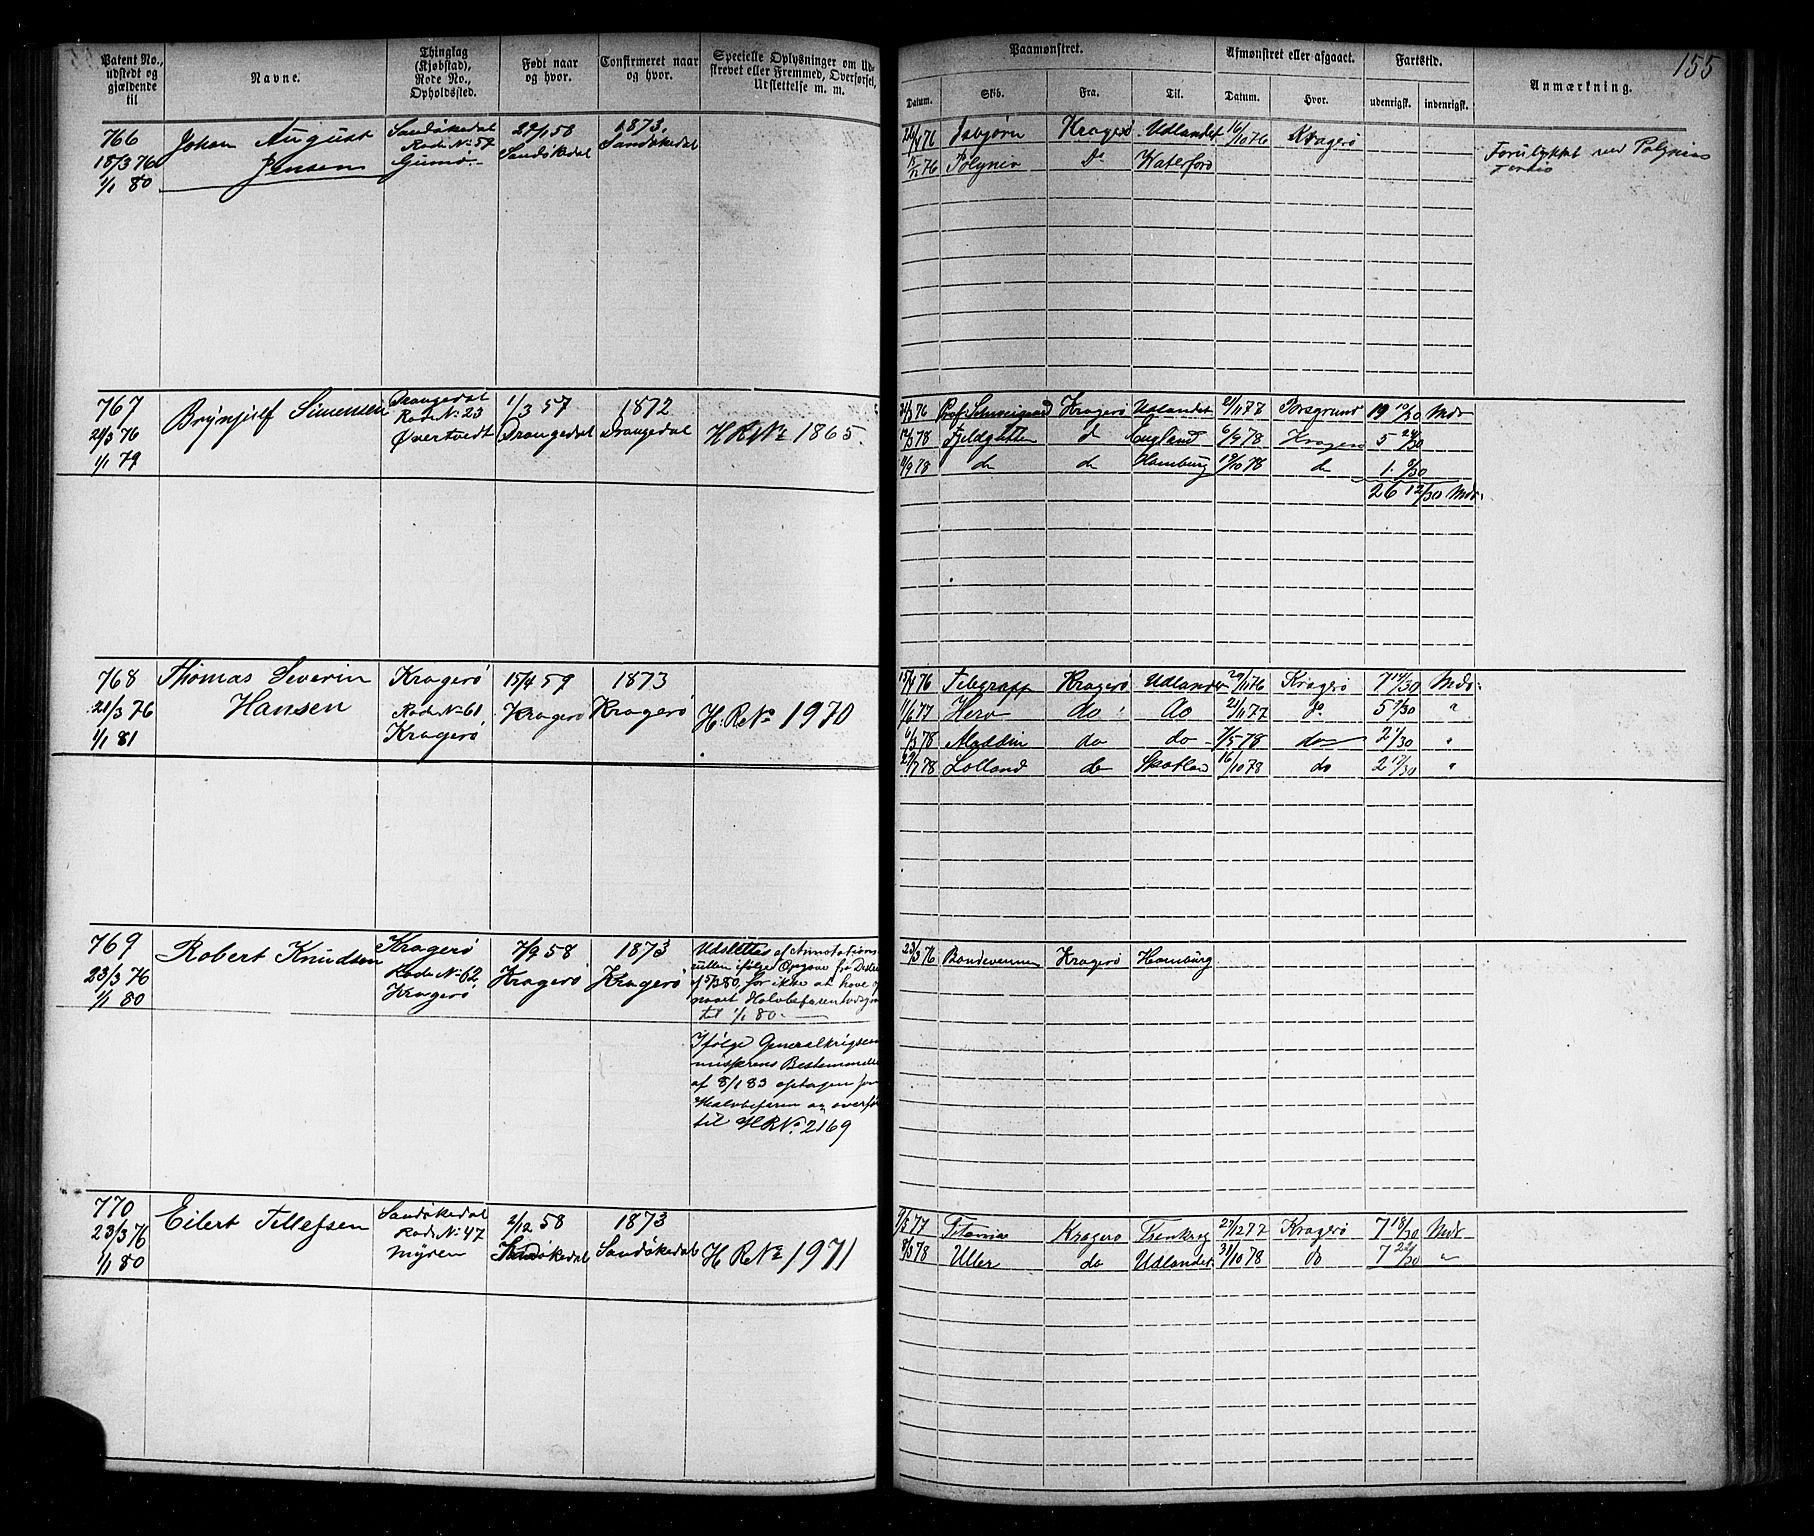 155
Patent No., udstedt og gjældende til
Navne.
Thinglag (Kjøbstad), Rode No., Opholdssted.
Født naar og hvor.
Confirmeret naar og hvor.
Specielle Oplysninger om Udstrevet eller Fremmed, Overførsel, Udslettelse m. m.
Paamønstret.
Afmønstret eller afgaaet.
Fartstid.
Anmærkning.
Datum.
Skib.
Fra.
Til.
Datum.
Hvor.
udenrigsk.
indenrigsk.
766
18/3 76
1/1 80
Johan August
Jensen
Sandøkedal
Rode No 57
Gumø
1858
Sandøkedal
1873.
Sandøkedal
76 Isbjørn Kragerø Udlandet 16/10 76 Kragerø
76 Polynia Do Waterford
Forulykket ved Polynias
767
21/3 76
1/1 79
Brynjulf Simensen
Drangedal
Rode No 23
Øvertvedt
1/3 57
Drangedal
1872
Drangedal
H R No 1865.
24/3 76 Prof. Schweigaard Kragerø Udlandet 21/11 77 Porsgrund 19 10/30 Mdr
78 Fjeldgutten d England 6/9 78 Kragerø 5 24/30
9 78 do do Hamburg 10 78 do 1. 8/30
26 12/30 Mdr.
768
21/3 76
1/1 81
Thomas Severin
Hansen
Kragerø
Rode No 61
Kragerø
15/4 59
Kragerø
1873
Kragerø
H. R No 1970
15/4 76 Telegraph Kragerø Udlandet 20/11 76 Kragerø 7 14/30 Mdr.
1/6 77 Herv do do 21/11 77 Do 5 "
6/3 78 do do 7/5 78 do 2 1/30 "
78 Lolland do Skotland 16/10 78 do 2 17/30 "
769
23/3 76
1/1 80
Robert Knudsen
Kragerø
Rode No 62
Kragerø
7/9 58
Kragerø
1873
Kragerø
Udslettes af Annotations
rullen ifølge Opgave fra
80, for ikke at have op
naaet Halvbefarenheds
til 1/1 80.
Ifølge Generalkrigscom
missærens Bestemmelse
af 8/1 83 optagen som
Halvbefaren og overfør
til H R No 2169
23/3 76 Bondevennen Kragerø Hamburg
770
23/3 76
1/1 80
Eilert Tellefsen
Sandøkedal
Rode No 47
Myren
2/12 58
Sandøkedal
1873
Sandøkedal
H R No 1971
7/5 77 Titania Kragerø Frenkrig 27/12 77 Kragerø 7 18/30 Mdr
8/3 78 Uller do Udlandet 31/10 78 do 7 22/30 "